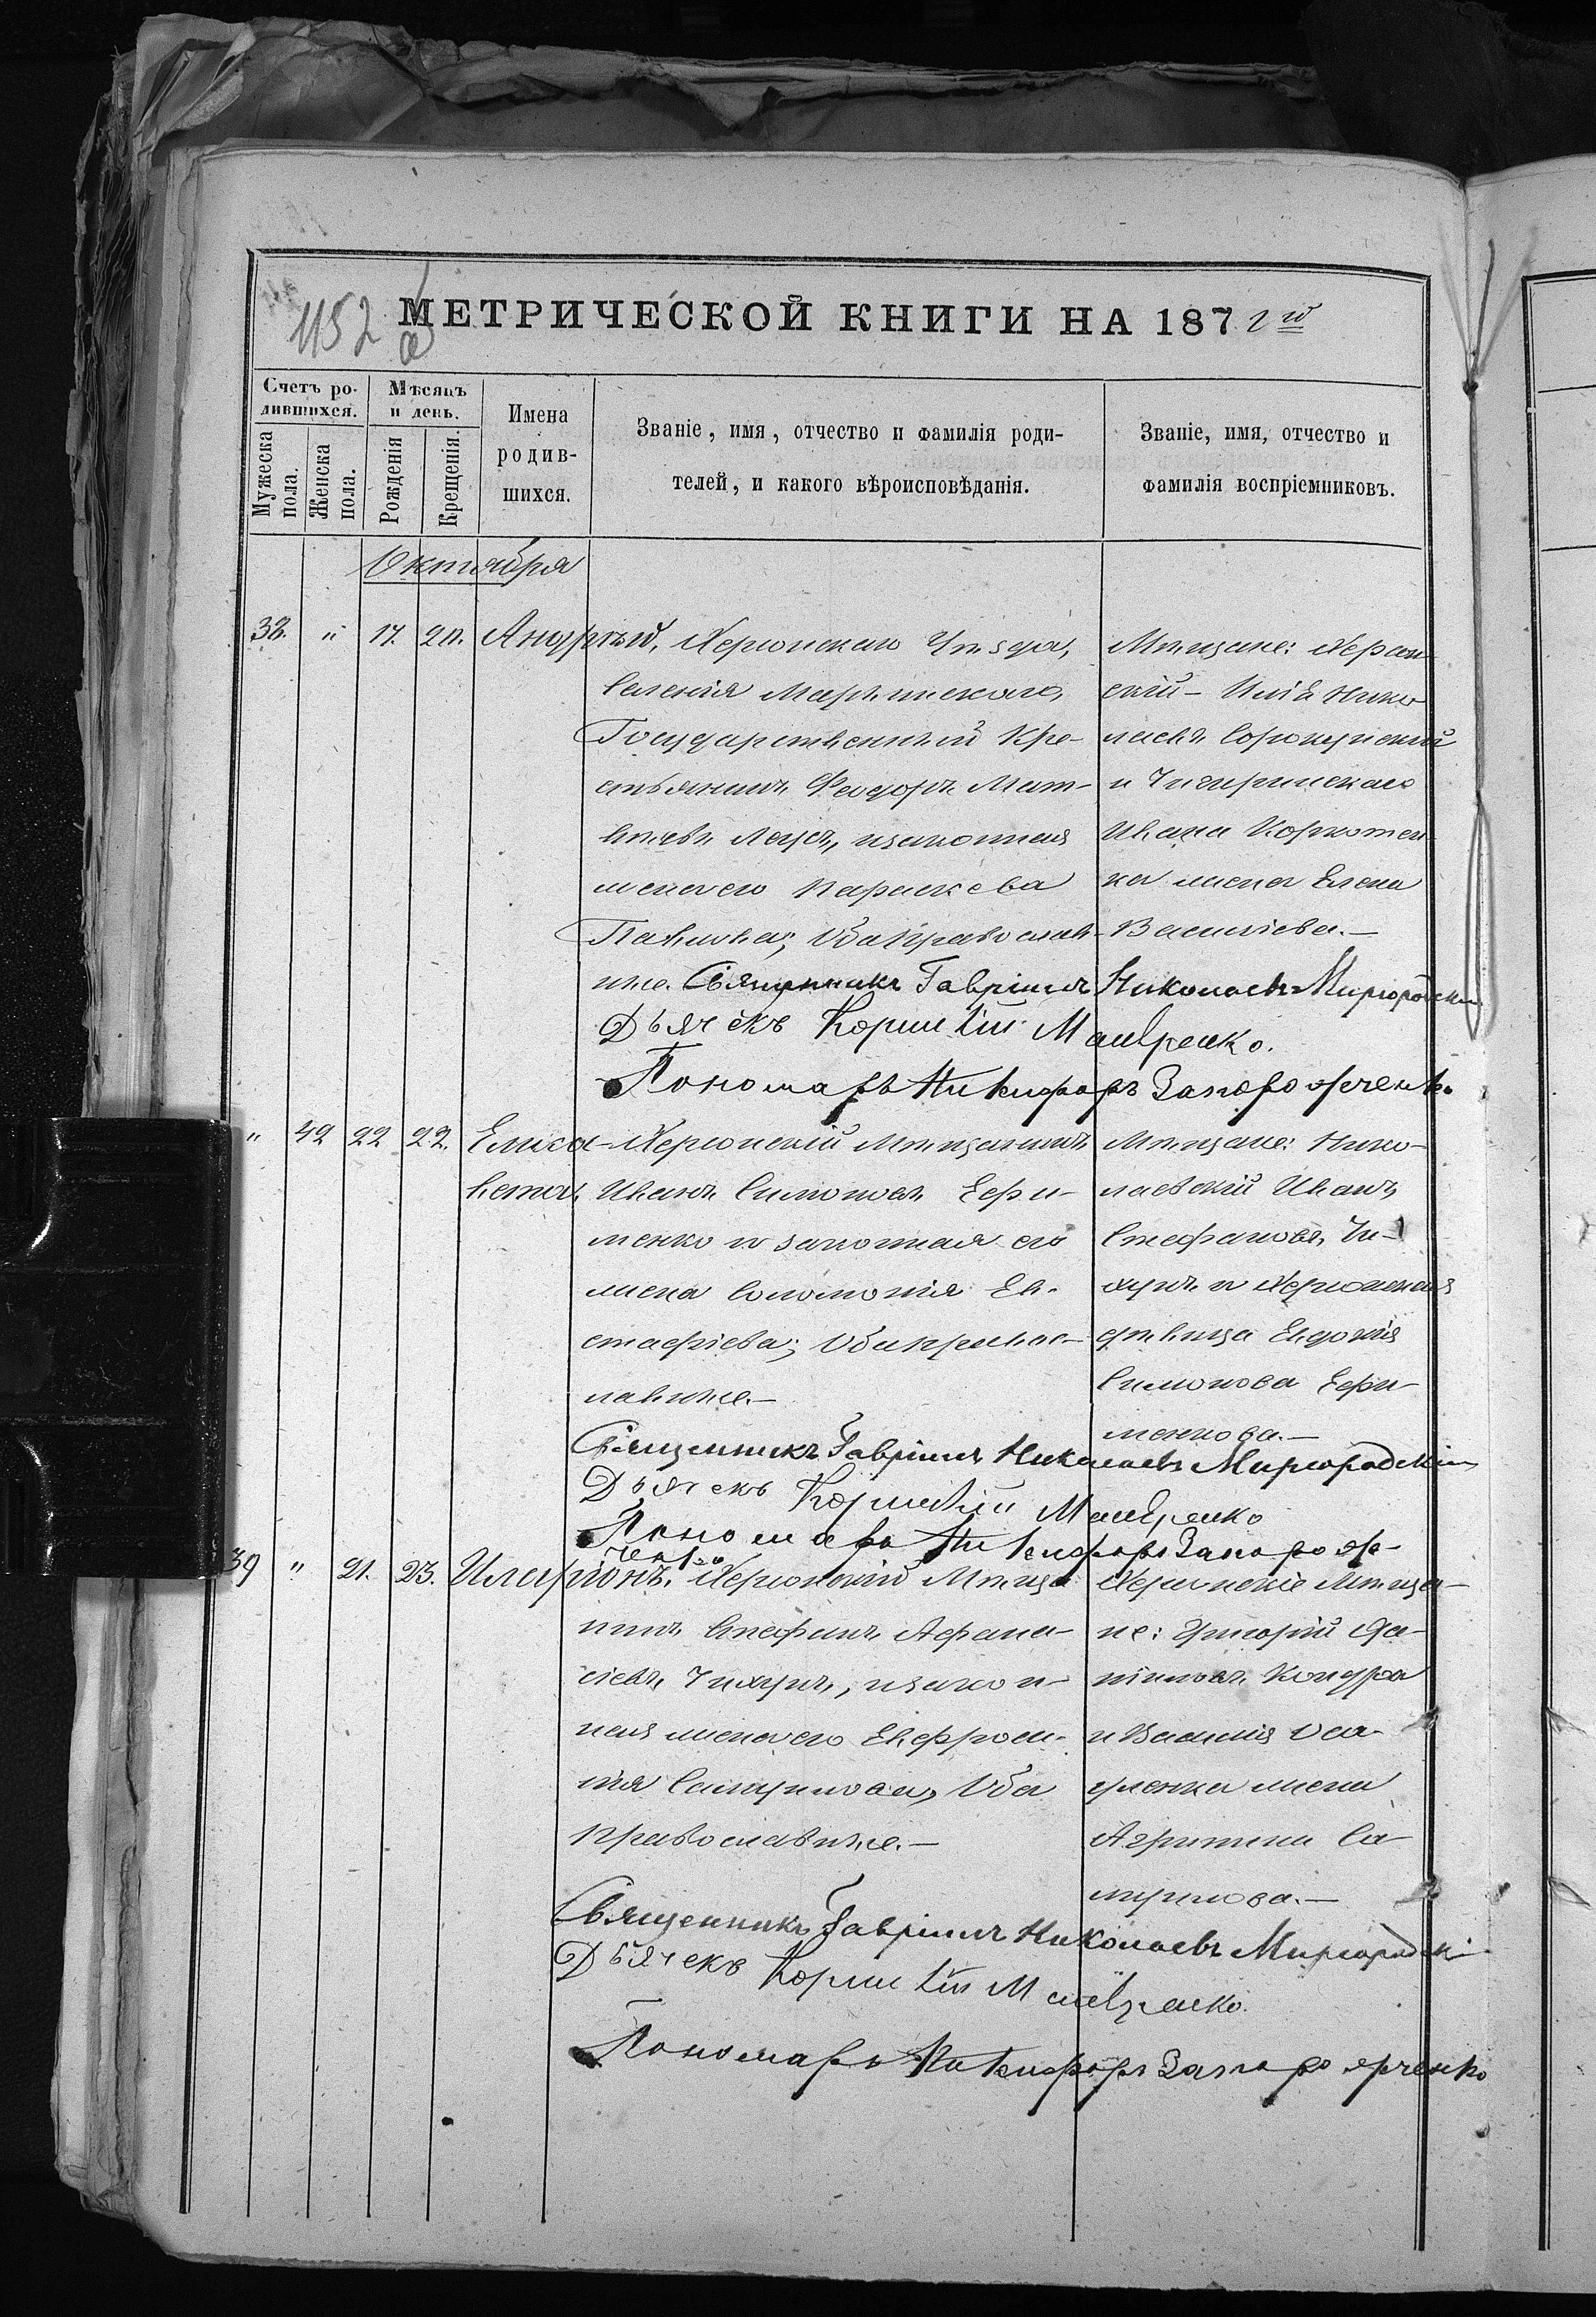 1152
МЕТРИЧЕСКОЙ КНИГИ НА 1872 й
Счетъ ро-
дившихся.
Мужеска
пола.
Женска
пола.
Мѣсяцъ
и день.
Рожденія
Крещенія.
Имена
родив-
шихся.
Званіе, имя, отчество и фамилія роди-
телей, и какого вѣроисповѣданія.
Званіе, имя, отчество и
фамилія воспріемниковъ.
Октября
38. " 17. 20. Андрей,
Херсонскаго Уѣзда,
селенія
Государственный Кре-
стьянинъ Феодоръ Мат-
вѣевъ изаконная
жена его Параскева
Павлова; Оба православ-
ные.
Мѣщане: Херсон
скій – Илія Нико
лаевъ
и Чигиринскаго
Ивана
ка жена Елена
Василіева.–
Священникъ Гавріилъ Николаевъ Миргородскій
Дьячекъ
Пономарь Никифоръ Запорожченко
" 42 22 22. Елиса-
вета,
Херсонскій Мѣщанинъ
Иванъ Симоновъ Ефи-
менко и законная его
жена Соломонія Ев-
стафіева; Оба правос-
лавные.–
Мѣщане: Нико-
лаевскій Иванъ
Стефановъ Чи-
хунъ и Херсонская
дѣвица Евдокія
Симонова Ефи-
менкова.–
Священникъ Гавріилъ Николаевъ Миргородскій
Дьячекъ
Пономарь Никифоръ Запорож-
ченко
39 " 21. 23. Иларіонъ.
Херсонскій Мѣща
нинъ Стефанъ Афана-
сіевъ Чихунъ, изакон-
ная жена его Евфроси-
нія Самуилова, Оба
православные.–
Херсонскіе Мѣща-
не: Григорій Да-
ніиловъ
и Василія
жена
Агрипина Са-
муилова.–
Священникъ Гавріилъ Николаевъ Миргородскій
Дьячекъ
Пономарь Никифоръ Запорожченко